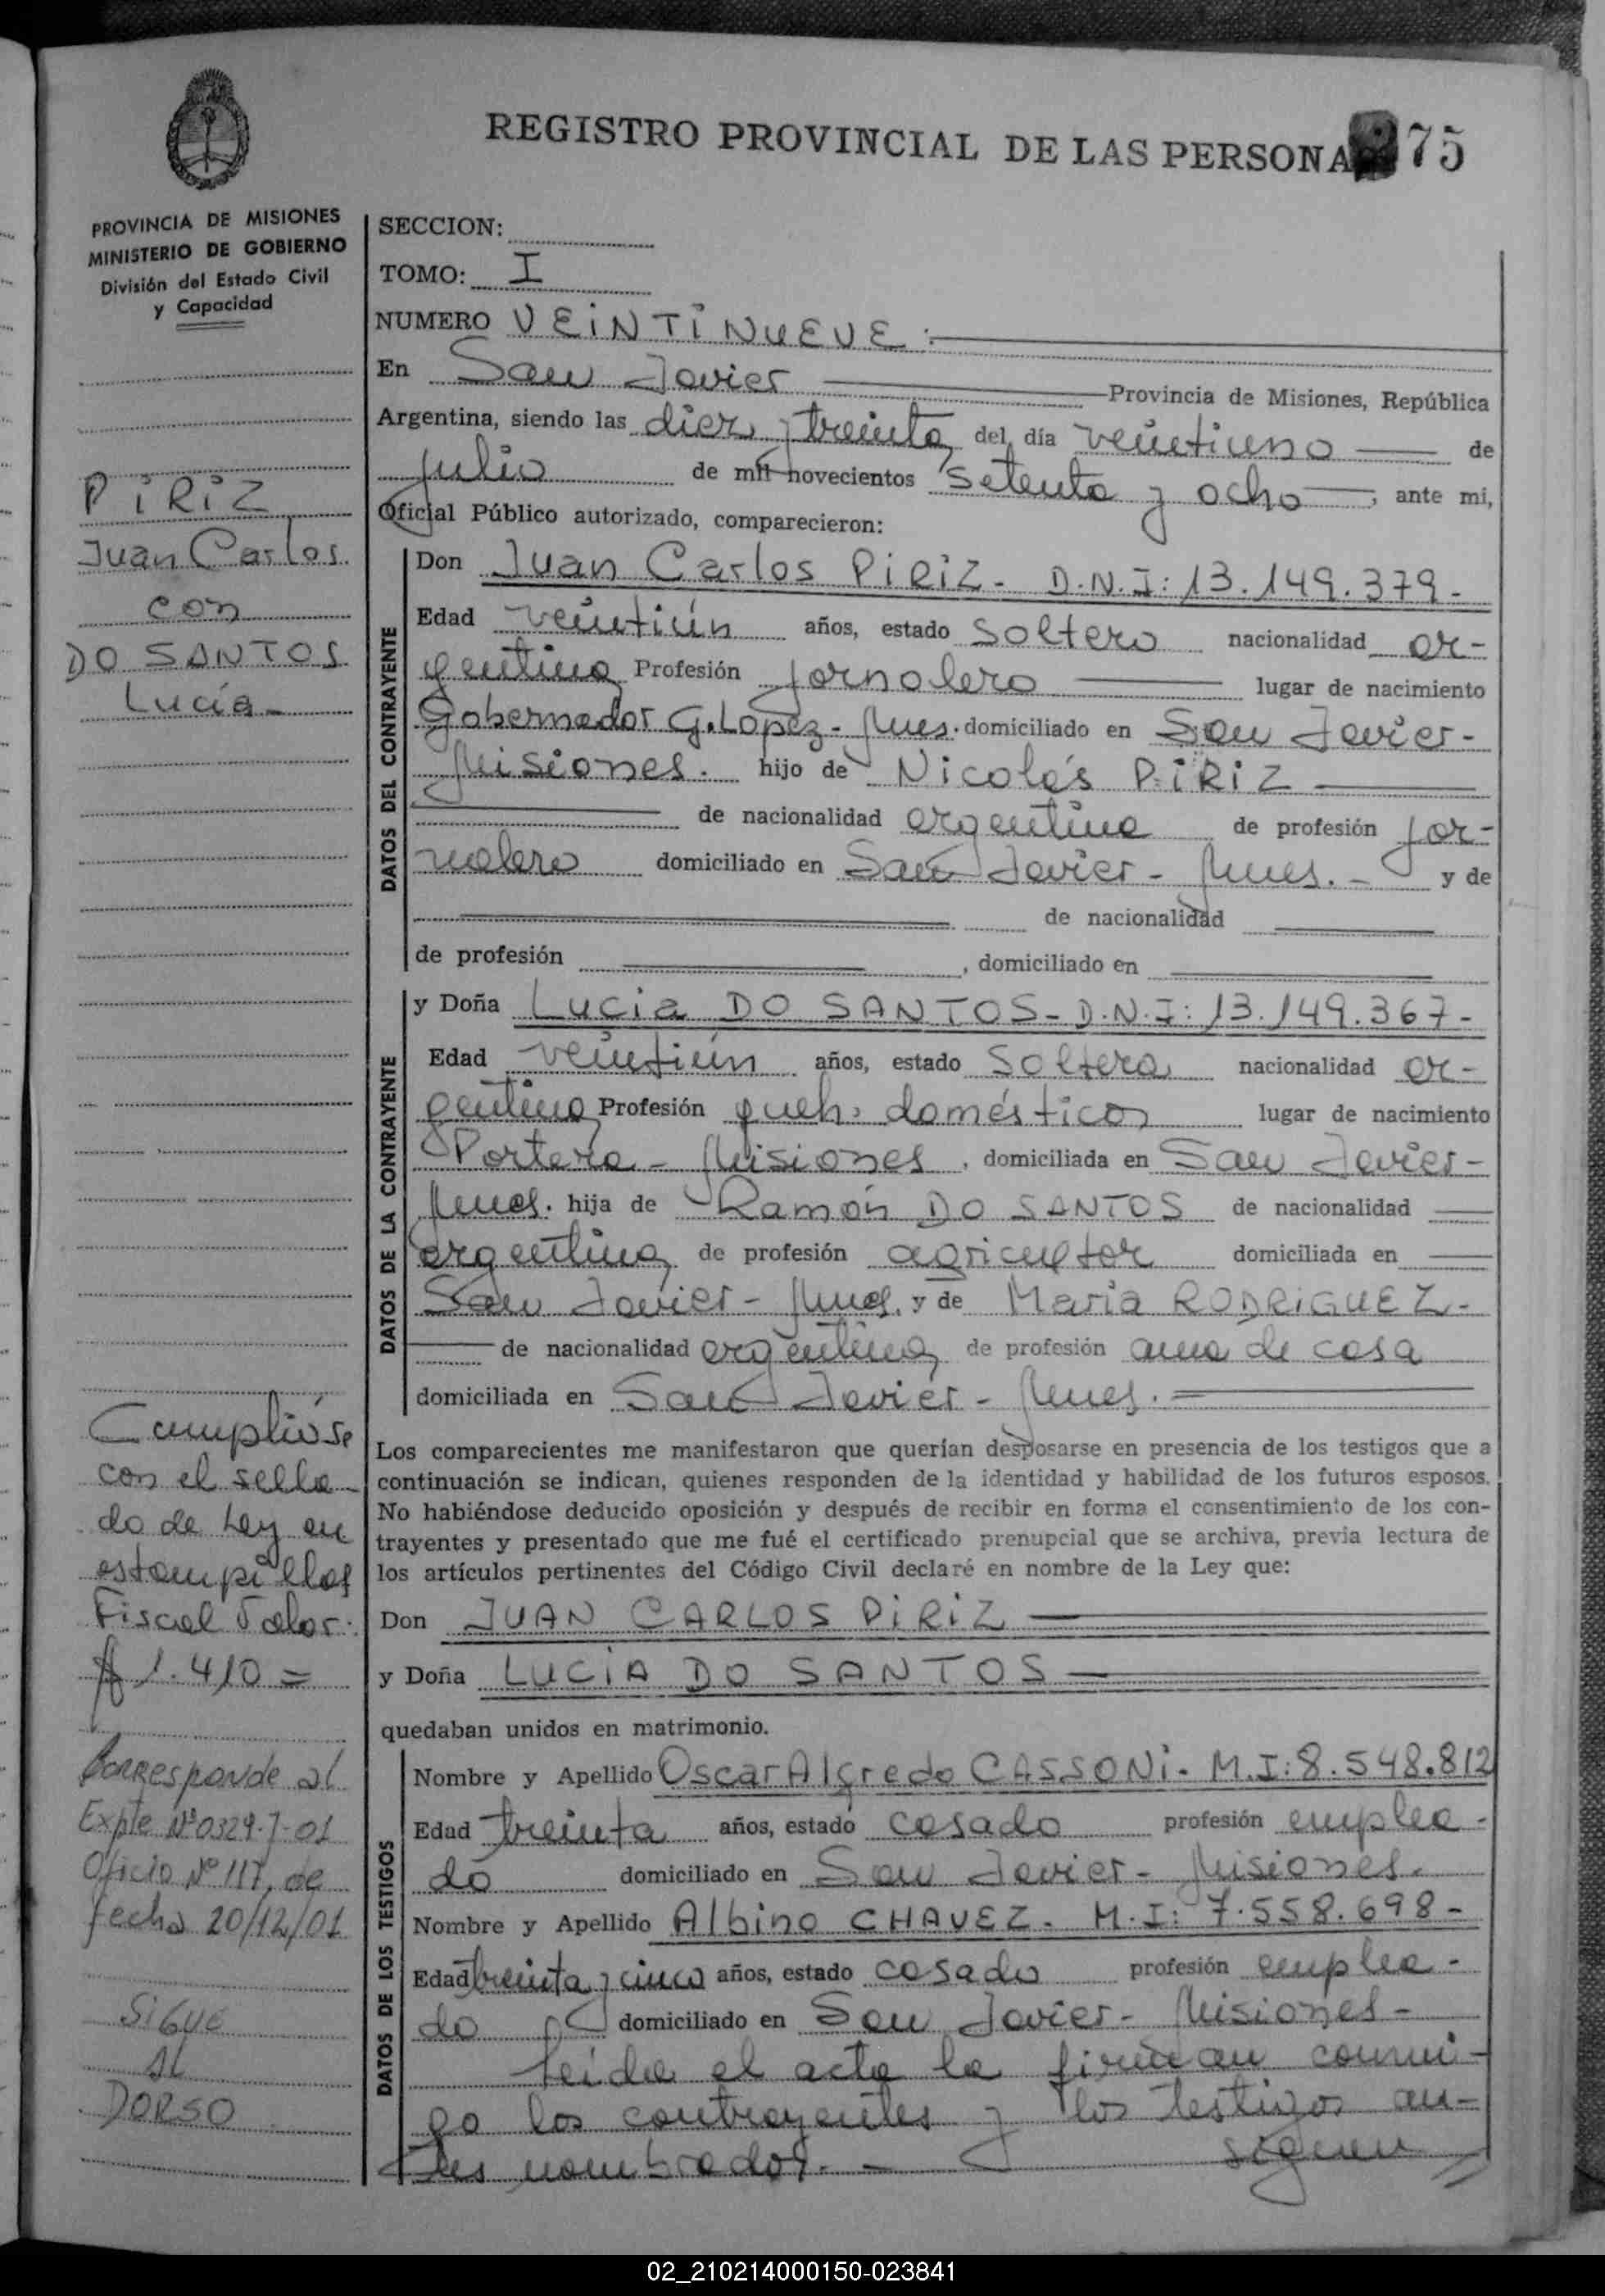 REGISTRO PROVINCIAL DE LAS PERSONA 75
PROVINCIA DE MISIONES
MINISTERIO DE GOBIERNO
División del Estado Civil
y Capacidad
PIRIZ
Juan Carlos
con
DO SANTOS
Lucía-
Cumplióse
con el sella-
do de Ley en
estampillas
Fiscal Valor:
$ 1.410=
Corresponde al
Expte Nº 0329-J-01
Oficio Nº 117, de
fecha 20/12/01
SIGUE
AL
DORSO
SECCION:
TOMO: I
NUMERO VEINTINUEVE:
En San Javier Provincia de Misiones, República
Argentina, siendo las diez y treinta del día veintiuno de
julio de mil novecientos setenta y ocho, ante mí,
Oficial Público autorizado, comparecieron:
DATOS DEL CONTRAYENTE
Don Juan Carlos PIRIZ- D.N.I: 13.149.379-
Edad veintiún años, estado soltero nacionalidad ar-
gentina Profesión jornalero lugar de nacimiento
Gobernador G. Lopez- Mnes. domiciliado en San Javier-
Misiones. hijo de Nicolás PIRIZ
de nacionalidad argentina de profesión jor-
nalero domiciliado en San Javier- Mnes.- y de
de nacionalidad
de profesión , domiciliado en
DATOS DE LA CONTRAYENTE
y Doña Lucía DO SANTOS- D.N.I: 13.149.367-
Edad veintiún años, estado soltera nacionalidad ar-
gentina Profesión queh. domésticos lugar de nacimiento
Portera- Misiones, domiciliada en San Javier-
Mnes. hija de Ramón DO SANTOS de nacionalidad
argentina de profesión agricultor domiciliada en
San Javier- Mnes. y de María RODRIGUEZ-
de nacionalidad argentina de profesión ama de casa
domiciliada en San Javier- Mnes.
Los comparecientes me manifestaron que querían desposarse en presencia de los testigos que a
continuación se indican, quienes responden de la identidad y habilidad de los futuros esposos.
No habiéndose deducido oposición y después de recibir en forma el consentimiento de los con-
trayentes y presentado que me fué el certificado prenupcial que se archiva, previa lectura de
los artículos pertinentes del Código Civil declaré en nombre de la Ley que:
Don JUAN CARLOS PIRIZ
y Doña LUCIA DO SANTOS
quedaban unidos en matrimonio.
DATOS DE LOS TESTIGOS
Nombre y Apellido Oscar Alfredo CASSONI- M.I: 8.548.812
Edad treinta años, estado casado profesión emplea-
do domiciliado en San Javier- Misiones.
Nombre y Apellido Albino CHAVEZ- M.I: 7.558.698-
Edad treinta y cinco años, estado casado profesión emplea-
do domiciliado en San Javier- Misiones-
Leída el acta la firman conmi-
go los contrayentes y los testigos an-
tes nombrados.- siguen
02_210214000150-023841